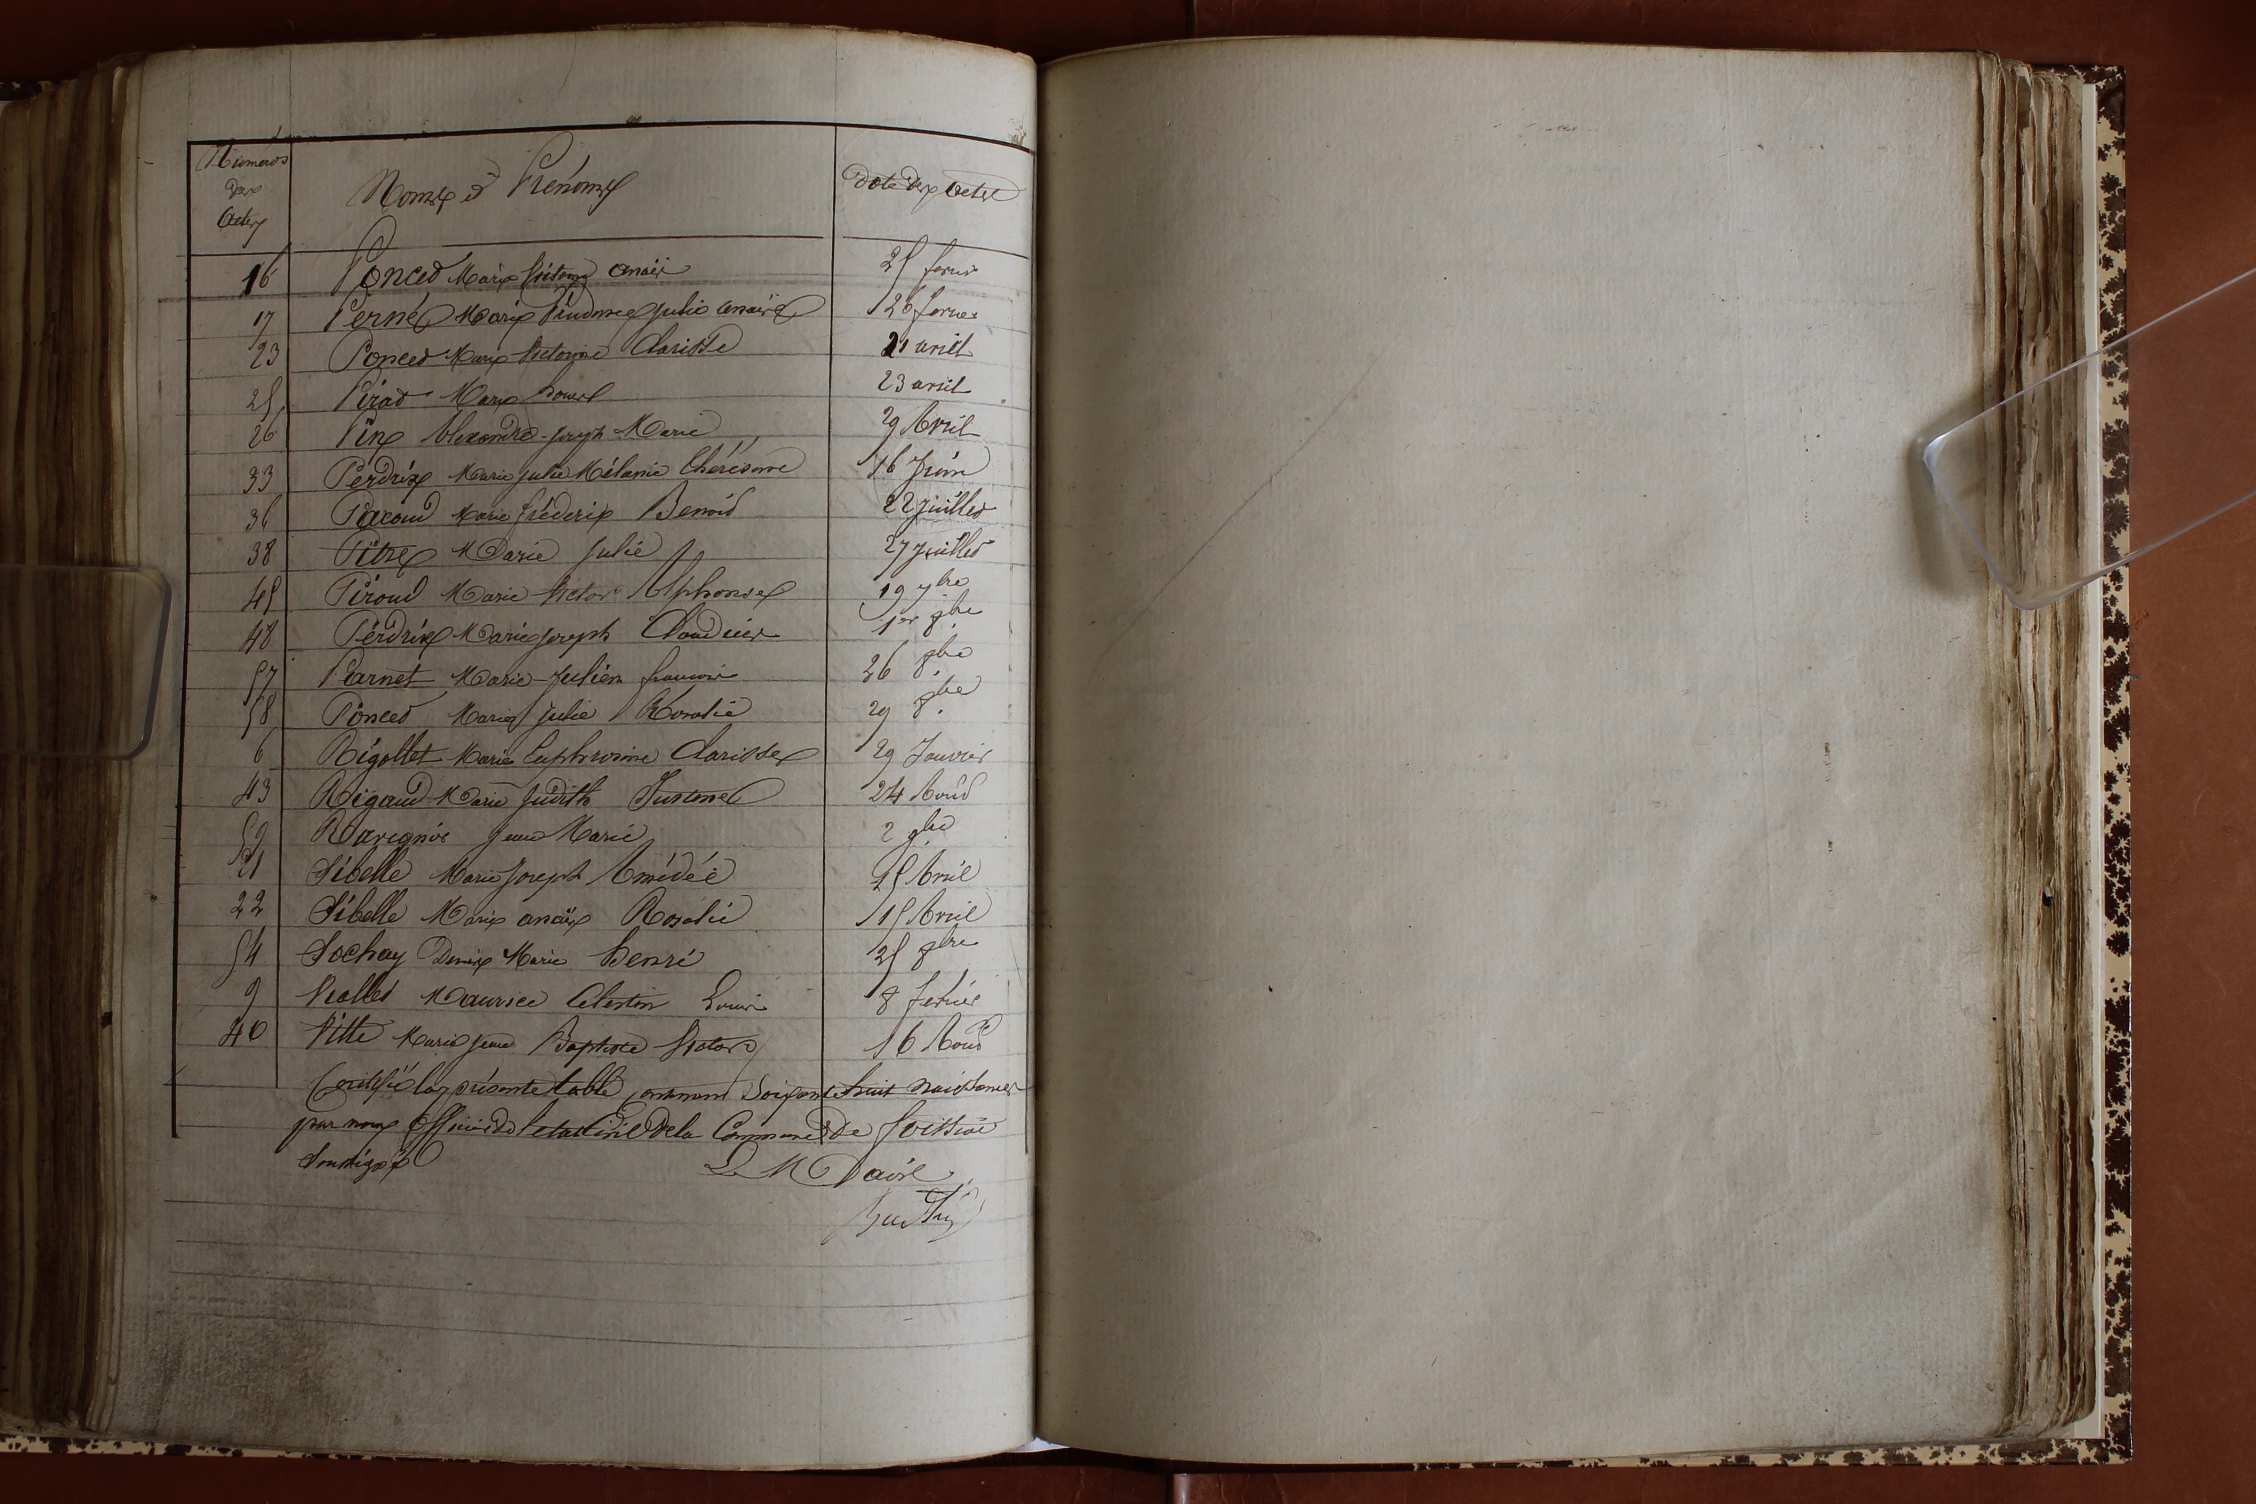 Numéros des Actes
Noms et Prénoms
Date des Actes
16 Poncet Marie Victoire Anaïs 25 fevrier
17 Pernet Marie Julie Anaïs 26 fevrier
23 Poncet Marie Victorine Clarisse 21 avril
25 Pirat Marie Louise 23 avril
26 Pin Alexandre Joseph Marie 29 Avril
33 Perdrix Marie Julie Mélanie 16 Juin
36 Pacoud Marie Fréderic Benoit 22 Juillet
38 Pitre Marie Julie 27 Juillet
45 Piroud Marie Victor Alphonse 19 7bre
48 Perdrix Marie Joseph Claudius 1er 8bre
57 Parnet Marie Julien francois 26 8bre
58 Poncet Marie Julie Rosalie 29 8bre
6 Rigollet Marie Euphrosine Clarisse 29 Janvier
43 Rigaud Marie Judith 24 Aout
59 Ravignor Jean Marie 2 9bre
21 Sibelle Marie Joseph Amédée 15 Avril
22 Sibelle Marie anaïs Rosalie 15 Avril
54 Sochay Denis Marie Henri 25 8bre
9 Viollet Maurice Celestin Louis 8 fevrier
40 Vitte Marie Jean Baptiste Victor 16 Aout
Certifié la présente table contenant Soixante huit naissances
par nous Officier de l'etat Civil de la Commune de Foissiat
Soussigné
Le Maire